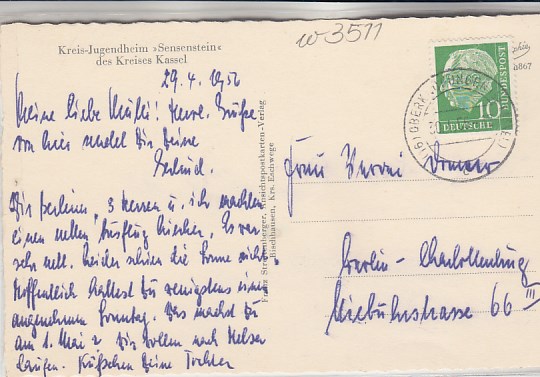 w 3511
Kreis-Jugendheim »Sensenstein«
des Kreises Kassel
29. 4. 1956
Meine liebe Mutti! Herzl. Grüße
von hier sendet Dir Deine
Gertrud.
Wir Berliner, 3 Herren u. ich machten
einen netten Ausflug hierher. Es war
sehr nett. Leider schien die Sonne nicht.
Hoffentlich hattest Du wenigstens einen
angenehmen Sonntag. Was machst Du
am 1. Mai?
laufen. Küßchen Deine Tochter
Ansichtspostkarten-Verlag
Bischhausen, Krs. Eschwege
10
DEUTSCHE
BUNDESPOST
867
Frau
Berlin-Charlottenburg
Niebuhrstrasse 66 III